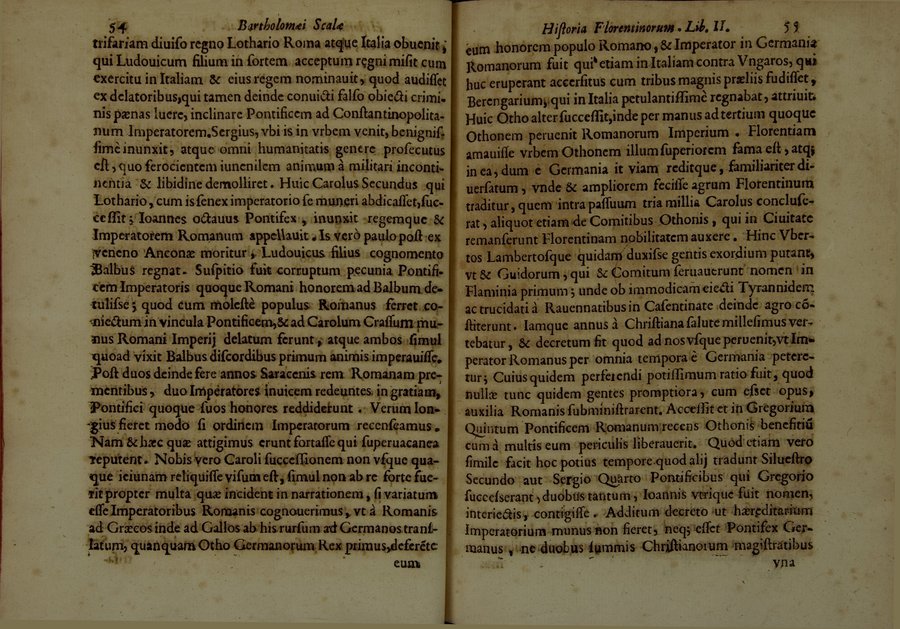 54 Bartholomæi Scalæ
trifariam diuiſo regno Lothario Roma atque Italia obuenit,
qui Ludouicum filium in ſortem acceptum regni miſit cum
exercitu in Italiam & eius regem nominauit, quod audiſſet
ex delatoribus,qui tamen deinde conuicti falſo obiecti crimi-
nis pænas luere, inclinare Pontificem ad Conſtantinopolita-
num Imperatorem.Sergius, vbi is in vrbem venit, benigniſ-
ſimè inunxit, atque omni humanitatis genere proſecutus
eſt, quo ferocientem iunenilem animum à militari inconti-
nentia & libidine demolliret. Huic Carolus Secundus qui
Lothario, cum is ſenex imperatorio ſe muneri abdicaſſet,ſuc-
ceſſit; Ioannes octauus Pontifex, inunxit regemque &
Imperatorem Romanum appellauit. Is verò paulo poſt ex
veneno Anconæ moritur, Ludouicus filius cognomento
Balbus regnat. Suſpitio fuit corruptum pecunia Pontifi-
cem Imperatoris quoque Romani honorem ad Balbum de-
tuliſſe; quod cum moleſtè populus Romanus ferret co-
niectum in vincula Pontificem,& ad Carolum Craſſum mu-
nus Romani Imperij delatum ferunt, atque ambos ſimul
quoad vixit Balbus diſcordibus primum animis imperauiſſe.
Poſt duos deinde fere annos Saracenis rem Romanam pre-
mentibus, duo Imperatores inuicem redeuntes in gratiam,
Pontifici quoque ſuos honores reddiderunt. Verum lon-
gius fieret modo ſi ordinem Imperatorum recenſeamus.
Nam & hæc quæ attigimus erunt fortaſſe qui ſuperuacanea
reputent. Nobis vero Caroli ſucceſſionem non vſque qua-
que ieiunam reliquiſſe viſum eſt, ſimul non ab re forte fue-
rit propter multa quæ incident in narrationem, ſi variatum
eſſe Imperatoribus Romanis cognouerimus, vt à Romanis
ad Græcos inde ad Gallos ab his rurſum ad Germanos tranſ-
latum, quanquam Otho Germanorum Rex primus,deferẽte
eum
Hiſtoria Florentinorum. Lib. II. 55
eum honorem populo Romano, & Imperator in Germania
Romanorum fuit qui etiam in Italiam contra Vngaros, qui
huc eruperant accerſitus cum tribus magnis præliis fudiſſet,
Berengarium, qui in Italia petulantiſſimè regnabat, attriuit.
Huic Otho alter ſucceſſit,inde per manus ad tertium quoque
Othonem peruenit Romanorum Imperium. Florentiam
amauiſſe vrbem Othonem illum ſuperiorem fama eſt, atq;
in ea, dum e Germania it viam reditque, familiariter di-
uerſatum, vnde & ampliorem feciſſe agrum Florentinum
traditur, quem intra paſſuum tria millia Carolus concluſe-
rat, aliquot etiam de Comitibus Othonis, qui in Ciuitate
remanſerunt Florentinam nobilitatem auxere. Hinc Vber-
tos Lambertoſque quidam duxiſſe gentis exordium putant,
vt & Guidorum, qui & Comitum ſeruauerunt nomen in
Flaminia primum; unde ob immodicam eiecti Tyrannidem
ac trucidati à Rauennatibus in Caſentinate deinde agro cõ-
ſtiterunt. Iamque annus à Chriſtiana ſalute milleſimus ver-
tebatur, & decretum fit quod ad nos vſque peruenit,vt Im-
perator Romanus per omnia tempora è Germania petere-
tur; Cuius quidem perferendi potiſſimum ratio fuit, quod
nullæ tunc quidem gentes promptiora, cum eſſet opus,
auxilia Romanis ſubminiſtrarent. Acceſſit et in Gregorium
Quintum Pontificem Romanum recens Othonis benefitiũ
cum à multis eum periculis liberauerit. Quod etiam vero
ſimile facit hoc potius tempore quod alij tradunt Silueſtro
Secundo aut Sergio Quarto Pontificibus qui Gregorio
ſucceſſerant, duobus tantum, Ioannis vtrique fuit nomen,
interiectis, contigiſſe. Additum decreto ut hæreditarium
Imperatorium munus non fieret, neq; eſſet Pontifex Ger-
manus, ne duobus ſummis Chriſtianorum magiſtratibus
vna